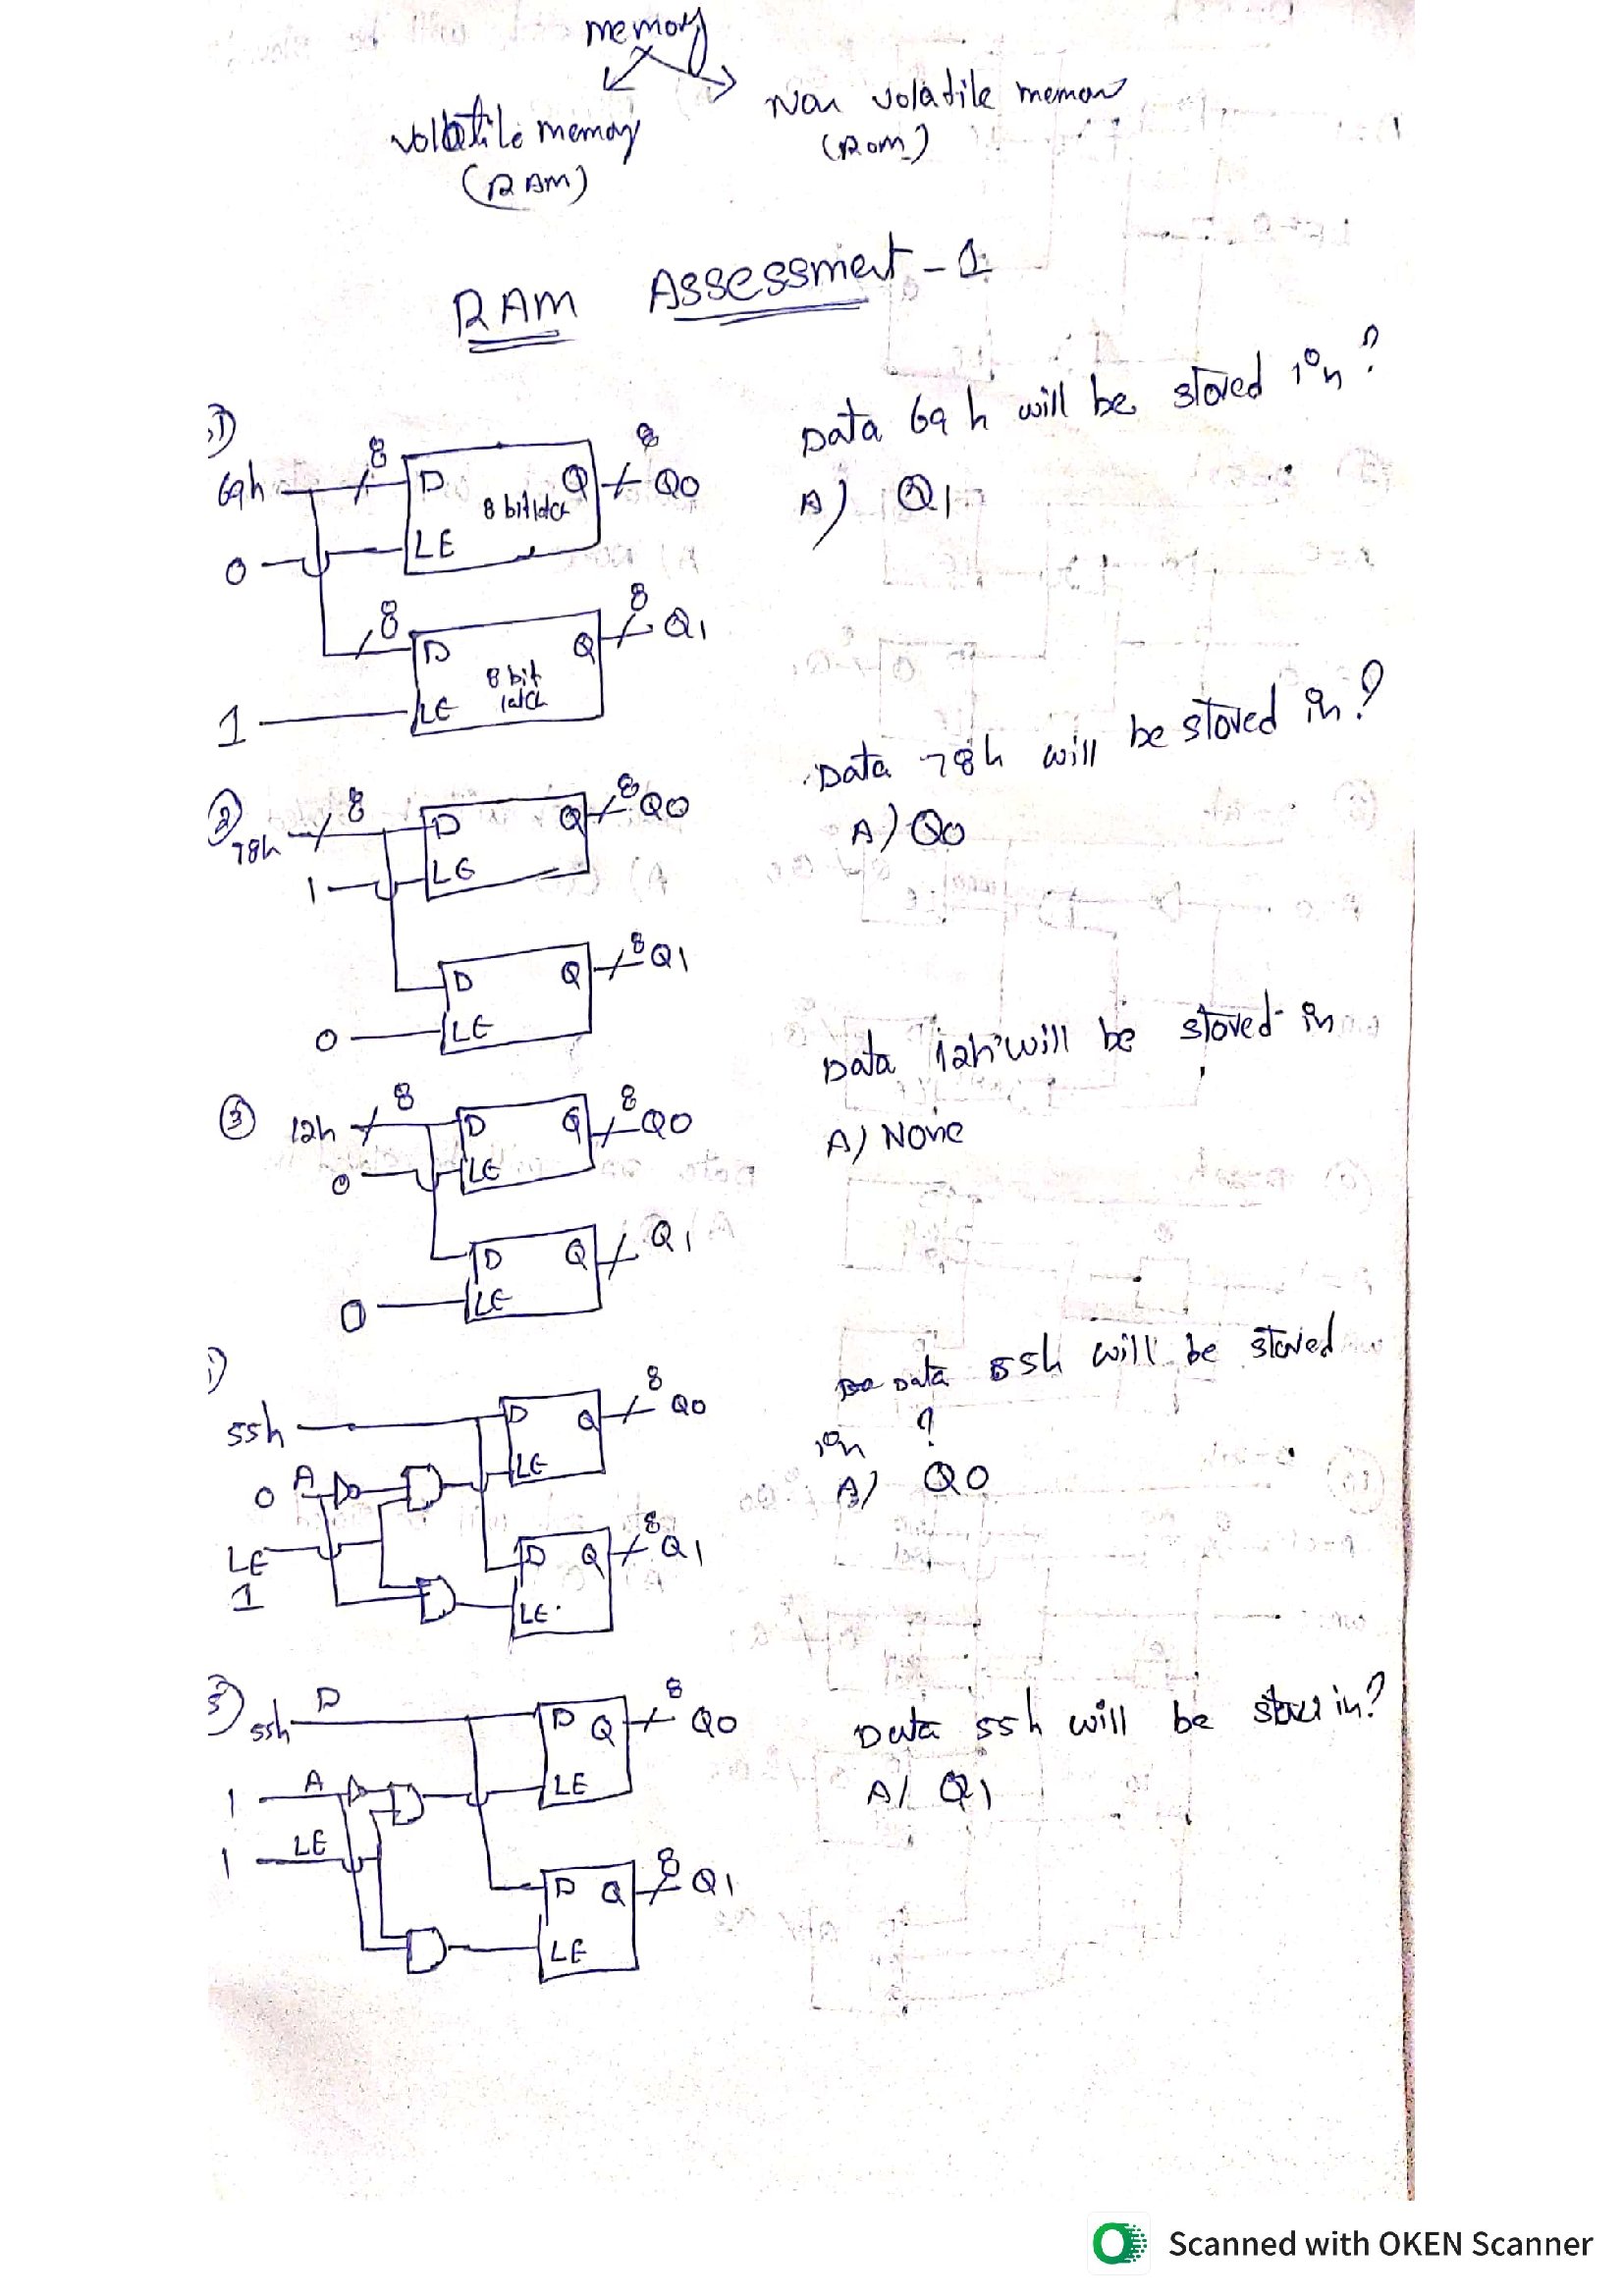 memory
volatile memory
(RAM)
Non volatile memory
(Rom)
RAM Assessment - 1
1)
69h 8 D Q 8 Q0
8 bit latch
0 LE
8 D Q 8 Q1
8 bit
latch
1 LE
Data 69 h will be stored in ?
A) Q1
2)
78h 8 D Q 8 Q0
1 LE
D Q 8 Q1
0 LE
Data 78h will be stored in ?
A) Q0
3 12h 8 D Q 8 Q0
0 LE
D Q Q1
0 LE
Data 12h will be stored in
A) None
55h D Q 8 Q0
0 A LE
LE D Q 8 Q1
1 LE
Data 55h will be stored
in ?
A) Q0
5) 55h D D Q 8 Q0
1 A LE
1 LE
D Q 8 Q1
LE
Data 55h will be in?
A) Q1
Scanned with OKEN Scanner